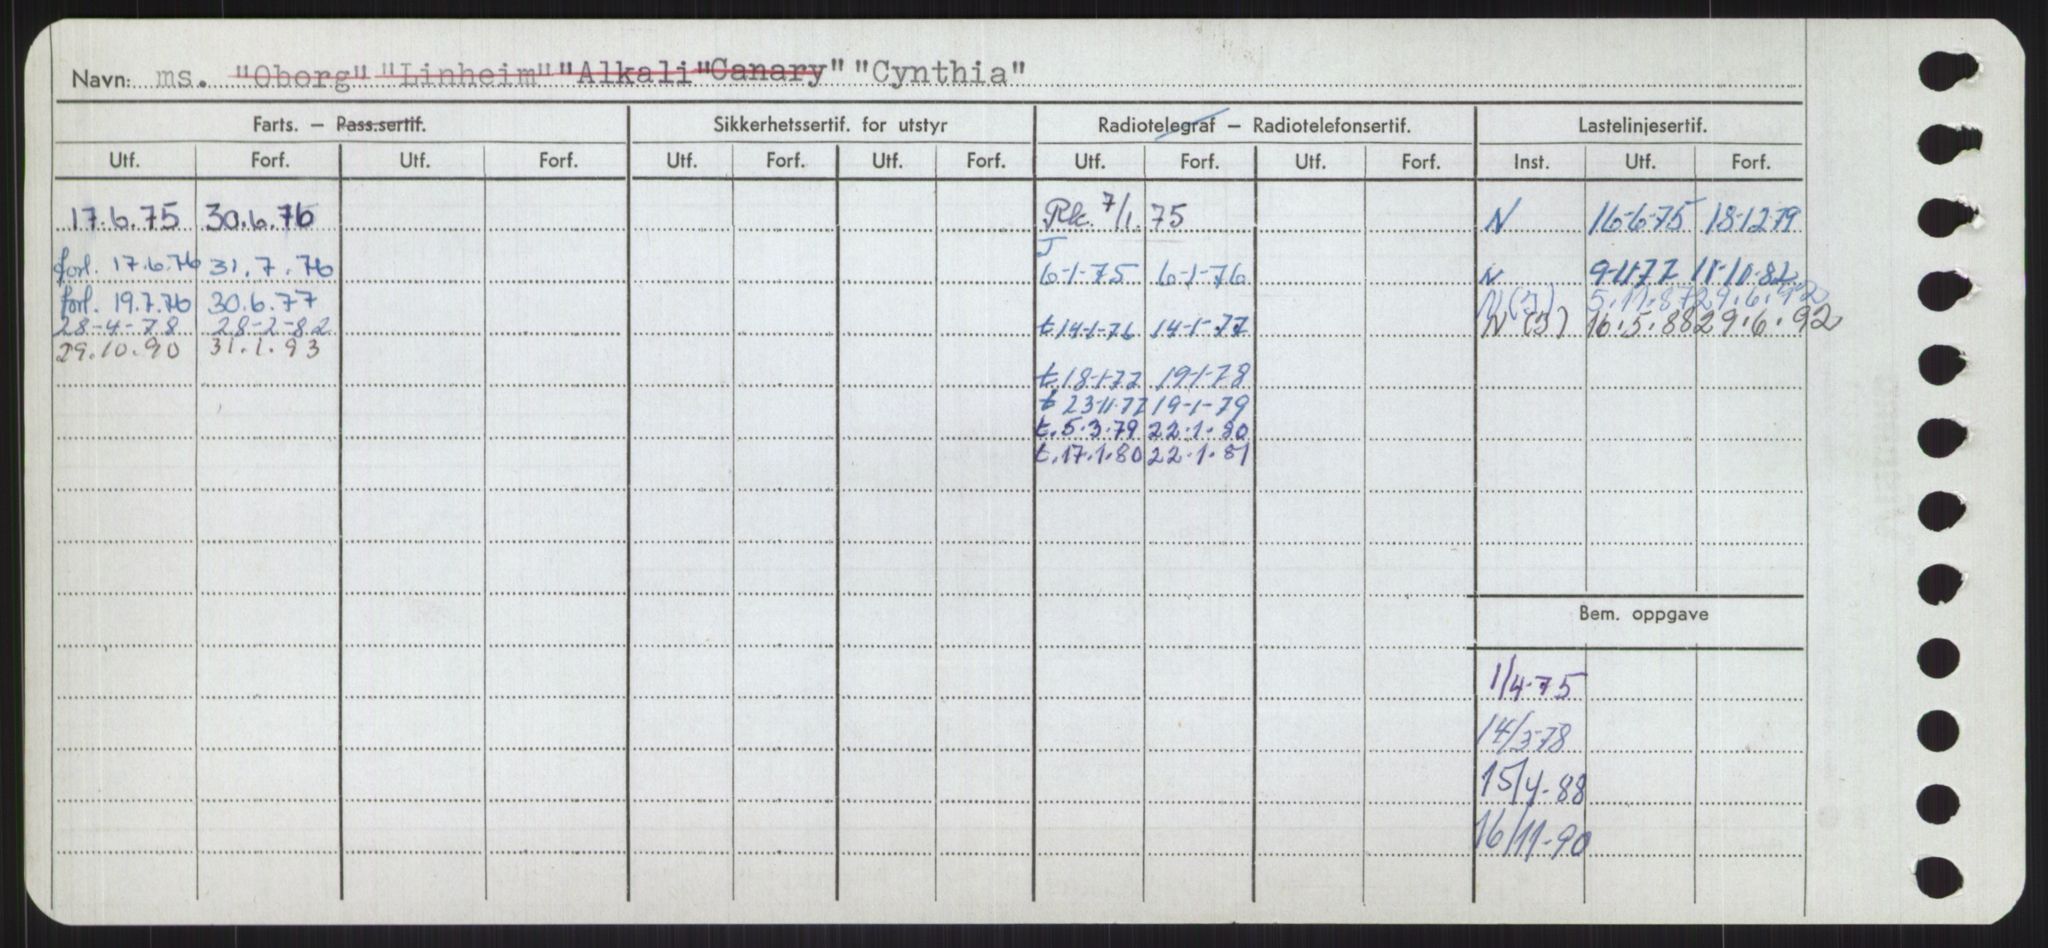 Navn: ms. "Oborg" "Linheim" "Alkali "Canary" "Cynthia"
Farts. – Pass.sertif. Sikkerhetssertif. for utstyr Radiotelegraf – Radiotelefonsertif. Lastelinjesertif.
Utf. Forf. Utf. Forf. Utf. Forf. Utf. Forf. Utf. Forf. Utf. Forf. Inst. Utf. Forf.
17.6.75 30.6.76 Rk. 7/1.75 N 16-6-75 18-12-79
J
forl. 17.6.76 31.7.76 6-1-75 6-1-76 N 9-11-77 11-10-82
forl. 19.7.76 30.6.77 N(J) 5.11.87 29.6.92
28-4-78 28-2-82 t 14-1-76 14-1-77 N (J) 16.5.88 29.6.92
29.10.90 31.1.93
t. 18-1-77 19-1-78
t 23-11-77 19-1-79
t. 5.3.79 22.1.80
t. 17.1.80 22.1.81
Bem. oppgave
1/4-75
14/3-78
15/4-88
16/11-90